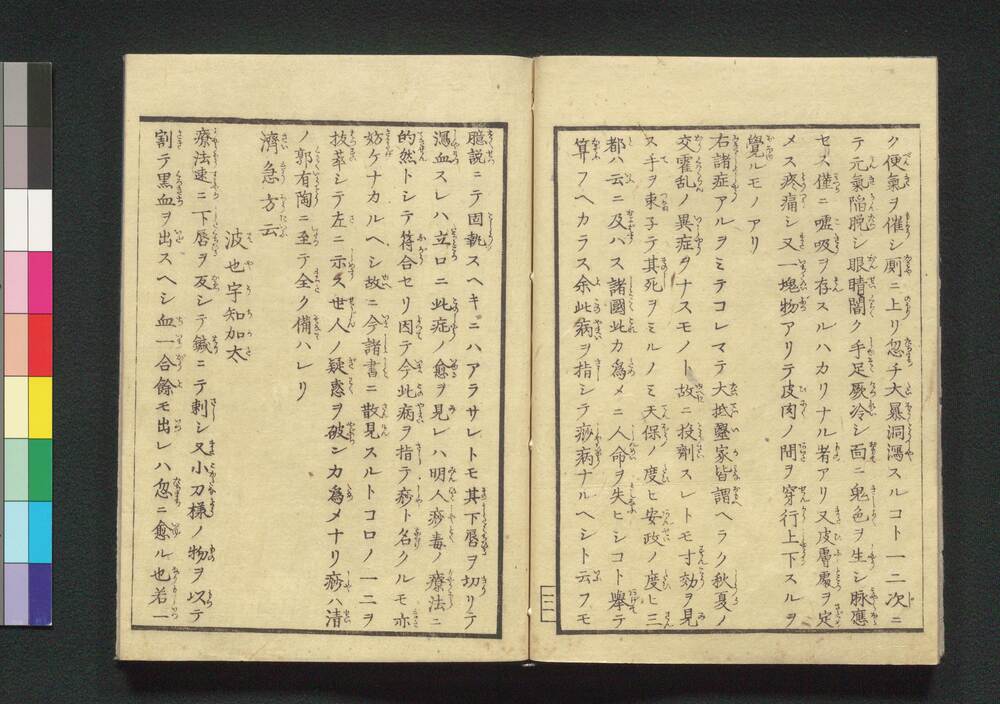 ク便氣ヲ催シ厠ニ上リ忽チ大暴洞瀉スルコト一二次ニ
テ元氣陥脱シ眼睛闇ク手足厥冷シ面ニ鬼色ヲ生シ脉應
セス僅ニ嘘吸ヲ存スルハカリナル者アリ又皮膚處ヲ定
メス疼痛シ又一塊物アリテ皮肉ノ間ヲ穿行上下スルヲ
覺ルモノアリ
右諸症アルヲミテコレマテ大抵毉家皆謂ヘラク秋夏ノ
交霍乱ノ異症ヲナスモノト故ニ投劑スレトモ寸効ヲ見
ス手ヲ束子テ其死ヲミルノミ天保ノ度ヒ安政ノ度ヒ三
都ハ云ニ及ハス諸國此カ為メニ人命ヲ失ヒシコト擧テ
算フヘカラス余此病ヲ指シテ痧病ナルヘシト云フモ
三
臆説ニテ固執スヘキニハアラサレトモ其下唇ヲ切リテ
瀉血スレハ立ロニ此症ノ愈ヲ見レハ明人痧毒ノ療法ニ
的然トシテ符合セリ因テ今此病ヲ指テ痧ト名クルモ亦
妨ケナカルヘシ故ニ今諸書ニ散見スルトコロノ一二ヲ
抜萃シテ左ニ示ス世人ノ疑惑ヲ破ンカ為メナリ痧ハ清
ノ郭有陶ニ至テ全ク備ハレリ
濟急方云
波也宇知加太
療法速ニ下唇ヲ反シテ鍼ニテ刺シ又小刀様ノ物ヲ以テ
割テ黒血ヲ出スヘシ血一合餘モ出レハ忽ニ愈ル也若一